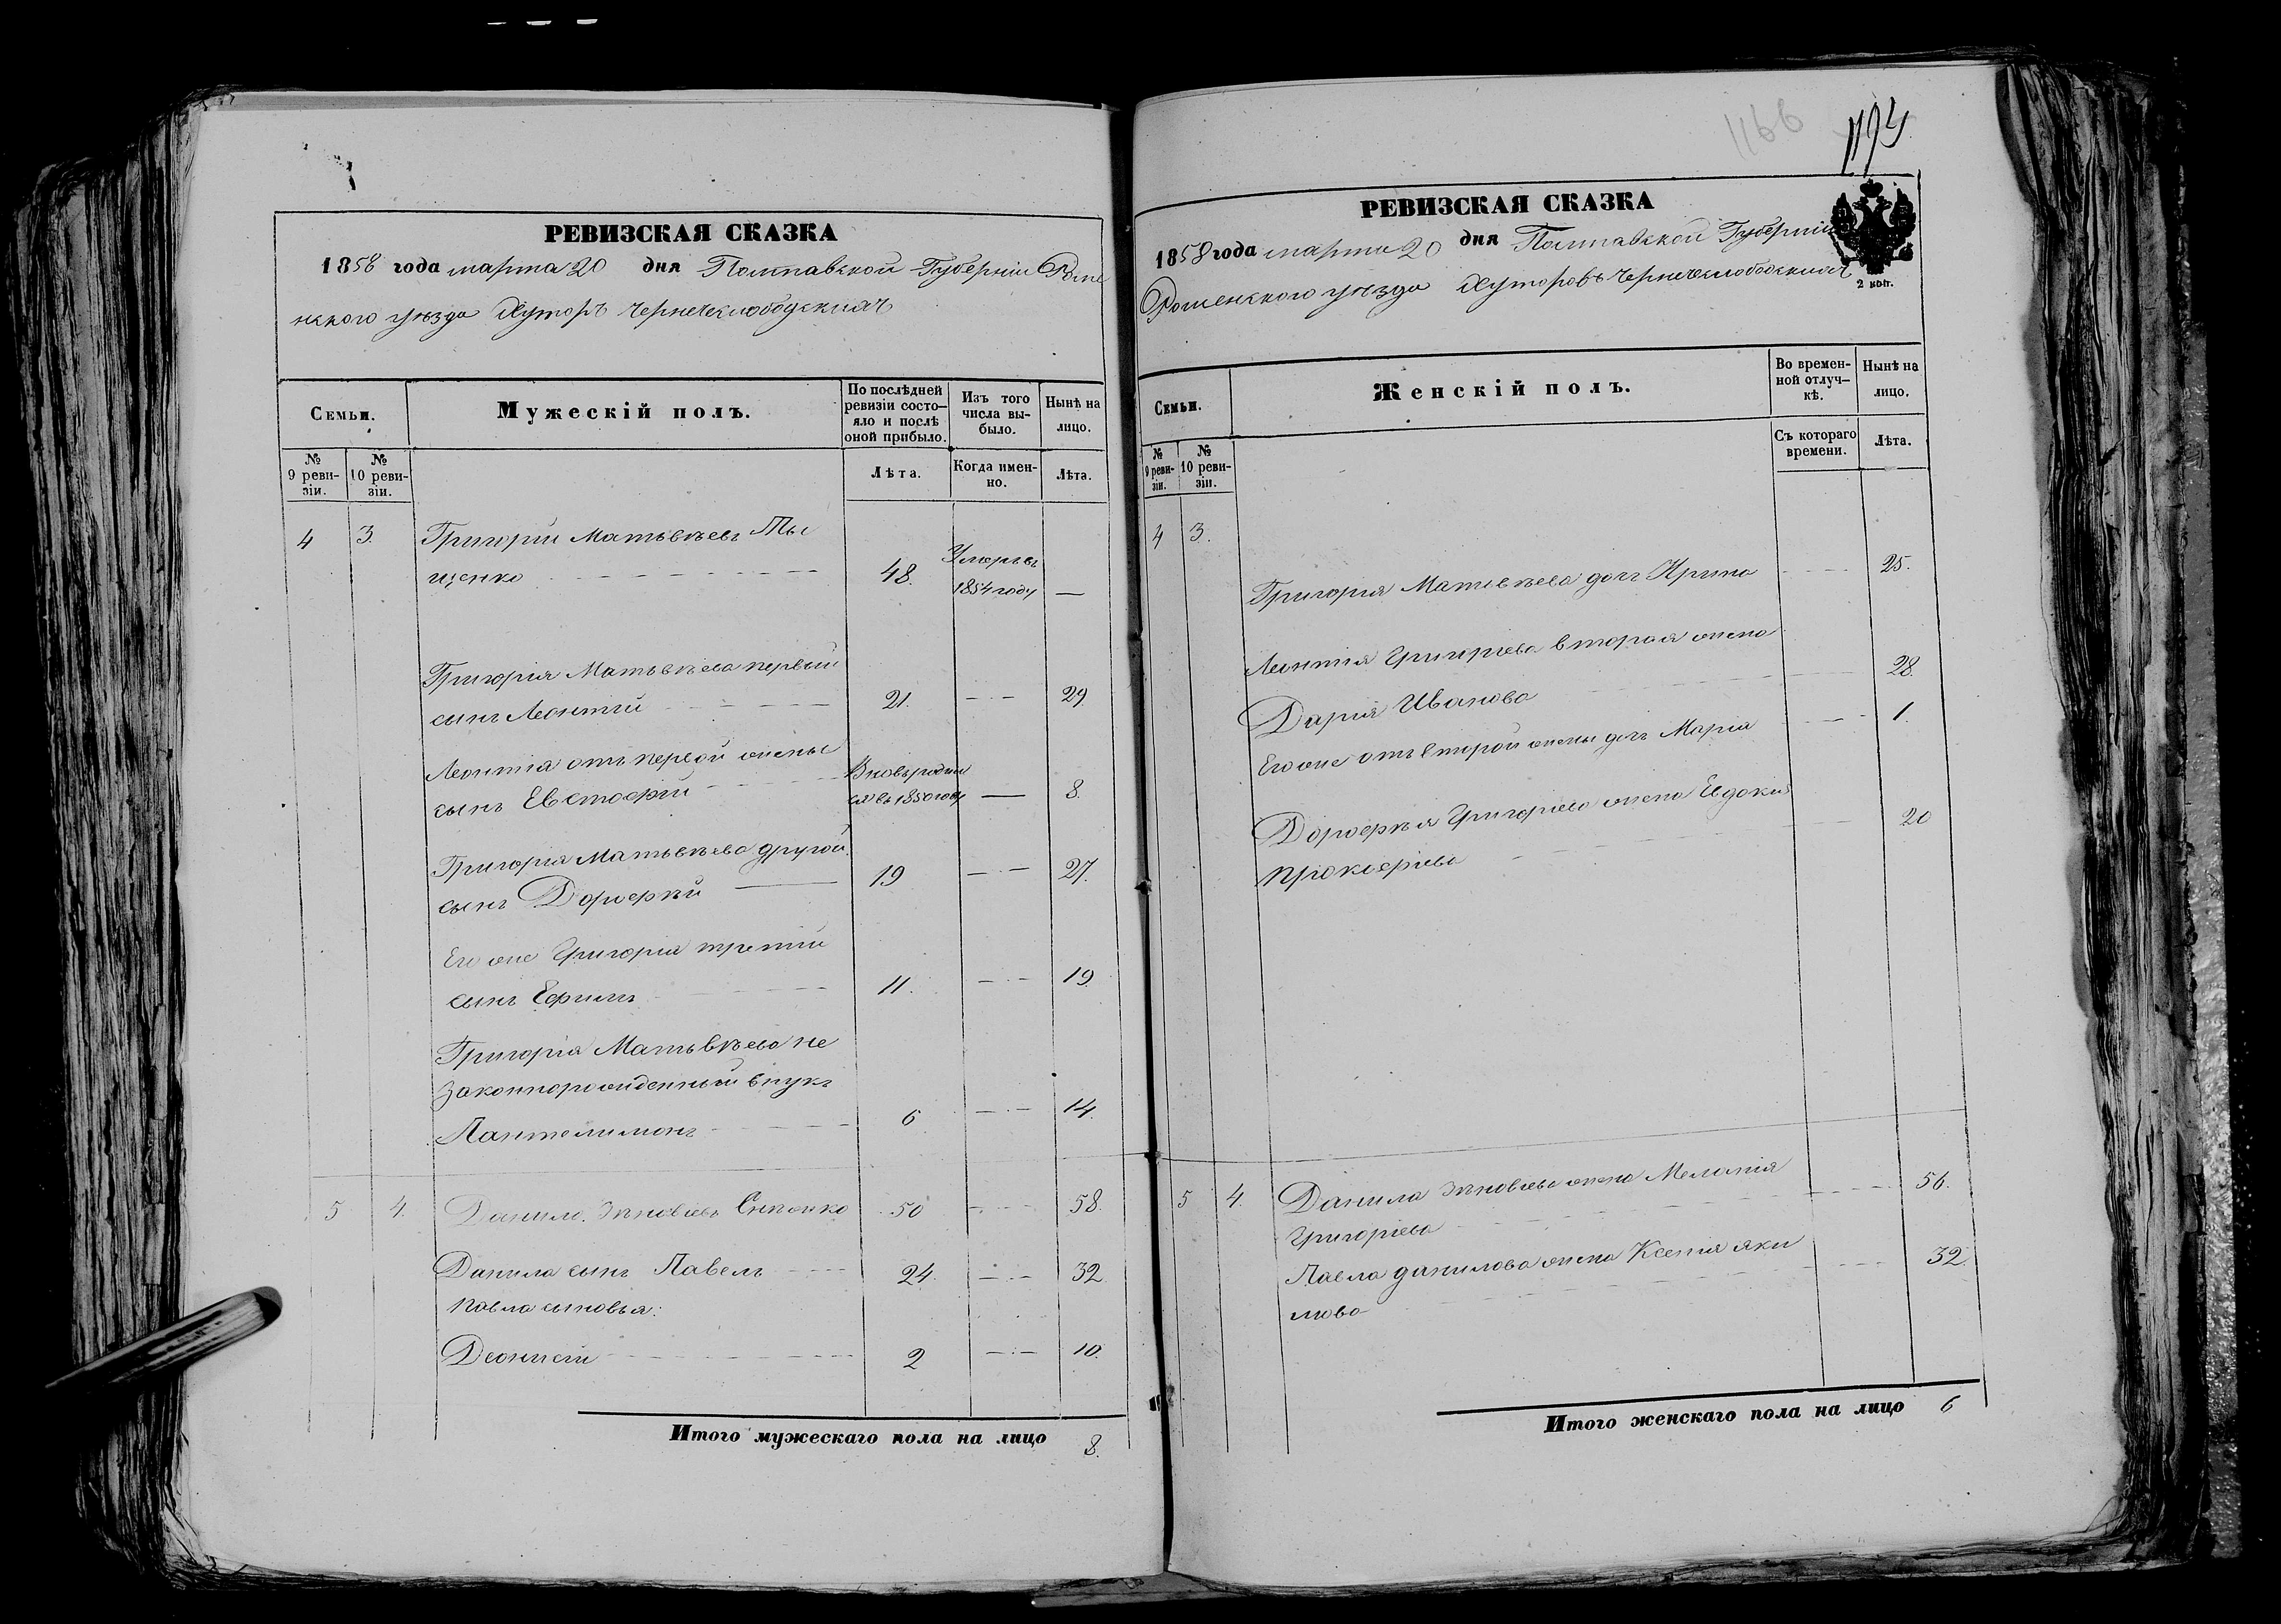 РЕВИЗСКАЯ СКАЗКА
1858 года марта 20 дня Полтавской Губернiи Роме
нского уѣзда Хуторъ Чернечеслободскихъ
Семьи.
Мужескiй полъ.
По послѣдней
ревизiи состо-
яло и послѣ
оной прибыло.
Изъ того
числа вы-
было.
Нынѣ на
лицо.
№
9 реви-
зiи.
№
10 реви-
зiи.
Лѣта.
Когда имен-
но.
Лѣта.
4 3. Григорiй Матвѣевъ Ты
щенко 48. Умеръ въ
1854 году —
Григорiя Матвѣева первый
сынъ Леонтiй 21. — 29.
Леонтiя отъ первой жены Вновь родил
сынъ Евстафiй ся въ 1850 году — 8.
Григорiя Матвѣева другой
сынъ Дорофѣй 19 — 27.
Его же Григорiя третiй
сынъ Ефимъ 11. — 19.
Григорiя Матвѣева не
законнорожденный внукъ
Пантелимонъ 6 — 14.
5 4. Данило Зѣновiевъ 50 — 58.
Данила сынъ Павелъ 24. — 32
Павла сыновья:
Деонисiй 2 — 10.
Итого мужескаго пола на лицо 8.
1166
1193.
РЕВИЗСКАЯ СКАЗКА
1858 года марта 20 дня Полтавской Губернiи
Роменского уѣзда Хуторовъ Чернечеслободскихъ
2 коп.
Семьи.
Женскiй полъ.
Во времен-
ной отлуч-
кѣ.
Нынѣ на
лицо.
№
9 реви-
зiи.
№
10 реви-
зiи.
Съ котораго
времени.
Лѣта.
4 3.
Григорiя Матвѣева дочь Ирина 25.
Леонтiя Григорiева вторая жена
Дарiя Иванова 28.
Его же отъ второй жены дочь Марiя 1.
Дорофѣя Григорiева жена Евдокiя
Прокофiева 20
5 4. Данила Зѣновiева жена Меланiя 56.
Григорiева
Павла Данилова жена Ксенiя Яки 32.
мова
Итого женскаго пола на лицо 6